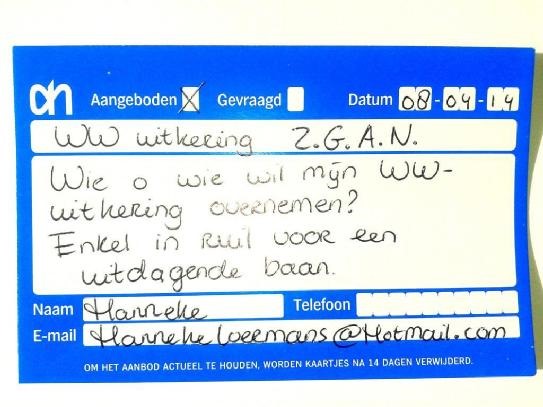 ah Aangeboden X Gevraagd Datum 08-04-14
WW uitkering Z.G.A.N.
Wie o wie wil mijn WW-
uitkering overnemen?
Enkel in ruil voor een
uitdagende baan.
Naam Hanneke Telefoon
E-mail Hannekeloermans@Hotmail.com
OM HET AANBOD ACTUEEL TE HOUDEN, WORDEN KAARTJES NA 14 DAGEN VERWIJDERD.